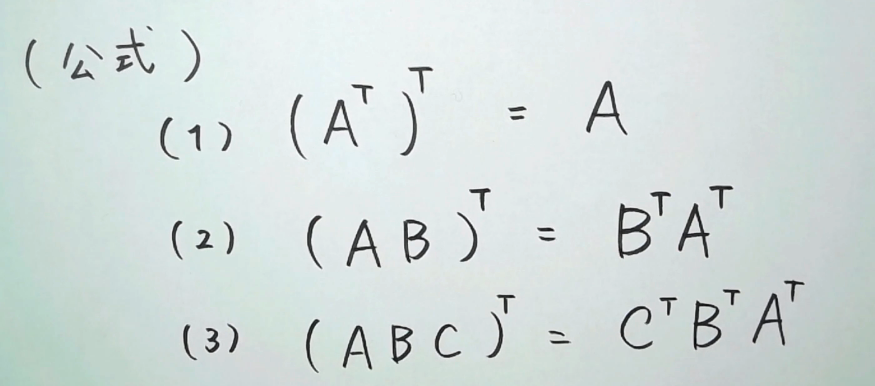 (公式)
(1) (Aᵀ)ᵀ = A
(2) (AB)ᵀ = BᵀAᵀ
(3) (ABC)ᵀ = CᵀBᵀAᵀ